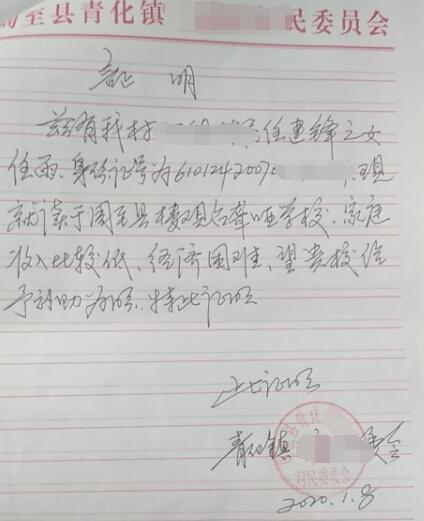 至县青化镇 民委员会
证 明
兹有我村 任建锋之女
任雨、身份证号为610124200 、现
就读于周至县楼观台聋哑学校、家庭
收入比较低、经济困难、望贵校给
予补助为盼、特此证明
上七证明
青化镇 委会
县青化
村民委员会
2020.1.8